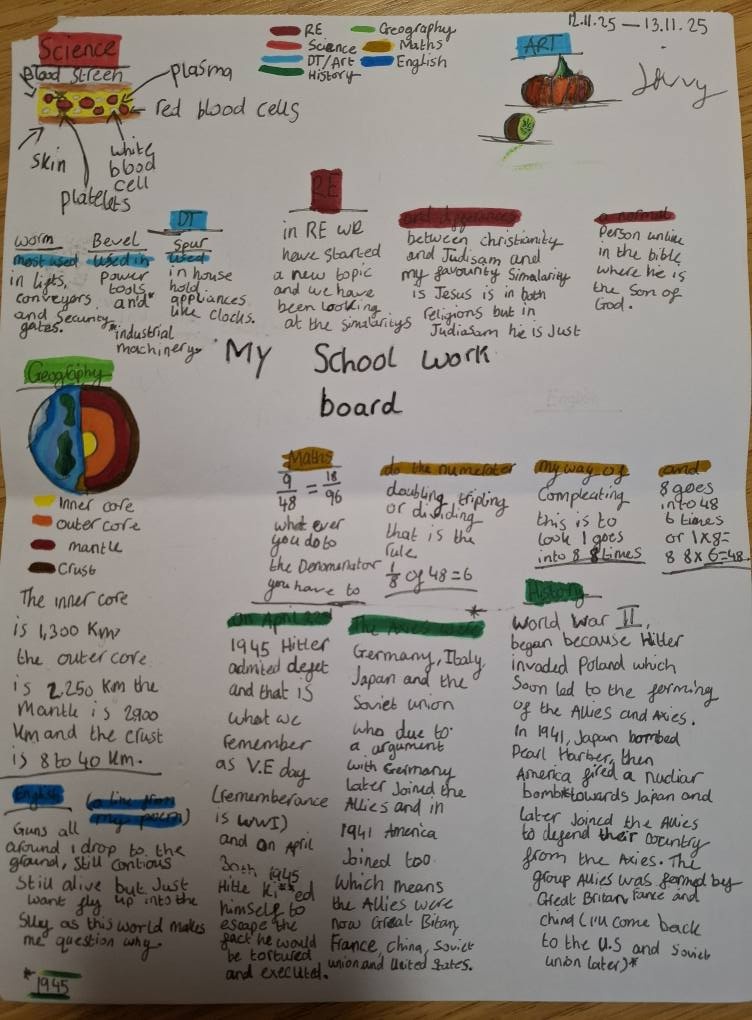 12.11.25 — 13.11.25
RE
Geography
Science
Maths
DT/Art
English
History
Science
Blood Streen
plasma
red blood cells
white
blood
cell
skin
platelets
ART
Jovvy
DT
Worm
most used
in lifts,
conveyors
and security
gates.
Bevel
used in
power
tools
and*
*industrial
machinery.
Spur
used
in house
hold
appliances
like clocks.
RE
in RE we
have started
a new topic
and we have
been looking
at the simalaritys
and differances
between christianity
and Judisam and
my favounty Simalarity
is Jesus is in both
religions but in
Judiasam he is Just
a normal
Person unlike
in the bible
where he is
the Son of
God.
My School work
board
English
Geography
Inner core
outer core
mantle
Crust
The inner core
is 1,300 Km
the outer core
is 2,250 Km the
Mantle is 2900
Km and the crust
is 8 to 40 Km.
Maths
9/48 = 18/96
what ever
you do to
the Denominator
you have to
do the numerator
doubling, tripling
or dividing
that is the
rule
1/8 of 48=6
my way of
Compleating
this is to
look 1 goes
into 8 8 times
and
8 goes
into 48
6 times
or 1x8=
8 8x6=48.
History
World War II,
began because Hitler
invaded Poland which
Soon led to the forming
of the Allies and Axies.
In 1941, Japan bombed
Pearl Harber, then
America fired a nucliar
bomb*towards Japan and
later Joined the Allies
to defend their country
from the Axies. The
group Allies was formed by
Great Britan, Fance and
china (I'll come back
to the U.S and Soviet
union later)*
*
The Axies were
Germany, Italy
Japan and the
Soviet union
who due to
a argument
with Germany
later Joined the
Allies and in
1941 America
Joined too
which means
the Allies were
now Great Bitan,
France, China, Soviet
union and United States.
on April 22nd
1945 Hitler
admited defet
and that is
what we
remember
as V.E day
(rememberance
is WW1)
and on April
30th 1945
Hitle ki**ed
himself to
escape the
fact he would
be tortured
and executed.
English
(a line from
my poem)
Guns all
around i drop to the
ground, Still contious
Still alive but Just
want fly up into the
Skuy as this world makes
me question why.
*1945